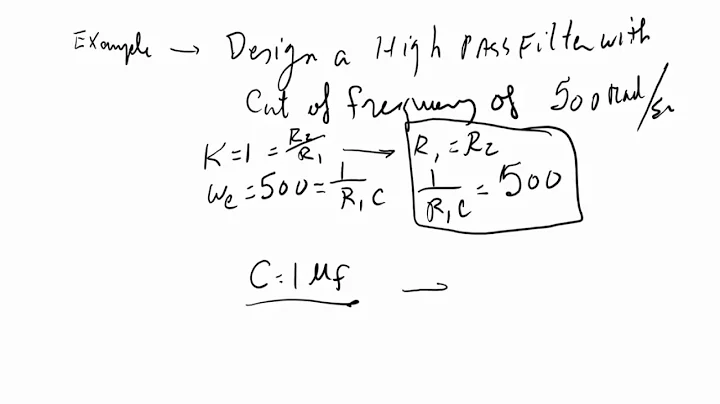 Example → Design a High PASS Filter with
Cut of frequency of 500 rad/sec
K = 1 = R2/R1 → R1 = R2
Wc = 500 = 1/R1C 1/R1C = 500
C = 1 Mf →